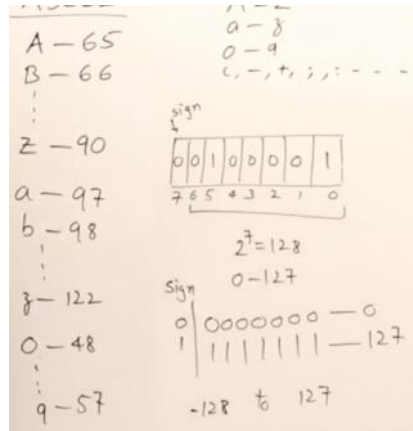 A - 65
B - 66
Z - 90
a - 97
b - 98
z - 122
0 - 48
9 - 57
a - z
0 - 9
sign
0 0 1 0 0 0 0 1
7 6 5 4 3 2 1 0
2^7 = 128
0 - 127
Sign
0 | 0000000 - 0
1 | 1111111 - 127
-128 to 127